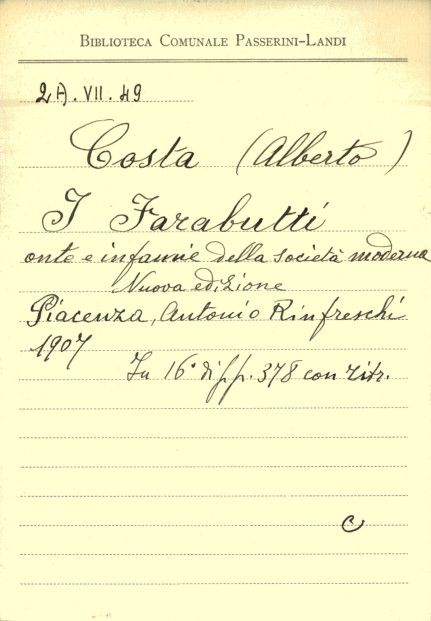 BIBLIOTECA COMUNALE PASSERINI-LANDI
2A. VII. 49
Costa (Alberto)
I Farabutti
onte e infamie della società moderna
Nuova edizione
Piacenza, Antonio Rinfreschi
1907
In 16° di pp. 378 con ritr.
C